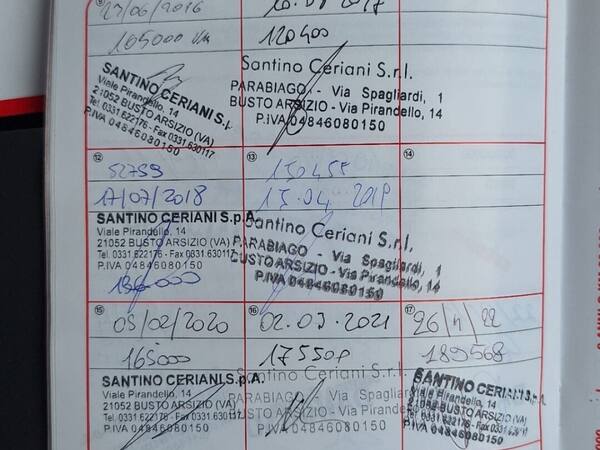 27/06/2016
105000 km
120400
SANTINO CERIANI S.r.l.
Viale Pirandello, 14
21052 BUSTO ARSIZIO (VA)
Tel. 0331.622176 - Fax 0331.630117
P.IVA 04846080150
Santino Ceriani S.r.l.
PARABIAGO - Via Spagliardi, 1
BUSTO ARSIZIO - Via Pirandello, 14
P.iVA 04846080150
12
17/07/2018
SANTINO CERIANI S.p.A.
Viale Pirandello, 14
21052 BUSTO ARSIZIO (VA)
Tel. 0331.622176 - Fax 0331.630117
P.IVA 04846080150
13
150455
15.04.2019
Santino Ceriani S.r.l.
PARABIAGO - Via Spagliardi, 1
BUSTO ARSIZIO - Via Pirandello, 14
P.iVA 04846080150
14
15
05/02/2020
165000
SANTINO CERIANI S.p.A.
Viale Pirandello, 14
21052 BUSTO ARSIZIO (VA)
Tel. 0331.622176 - Fax 0331.630117
P.IVA 04846080150
16
02.03.2021
Santino Ceriani S.r.l.
PARABIAGO - Via Spagliardi
BUSTO ARSIZIO - Via Pirandello
P.iVA 04846080150
17
26/11/22
189568
SANTINO CERIANI S.p.A.
Viale Pirandello, 14
21052 BUSTO ARSIZIO (VA)
P.IVA 04846080150